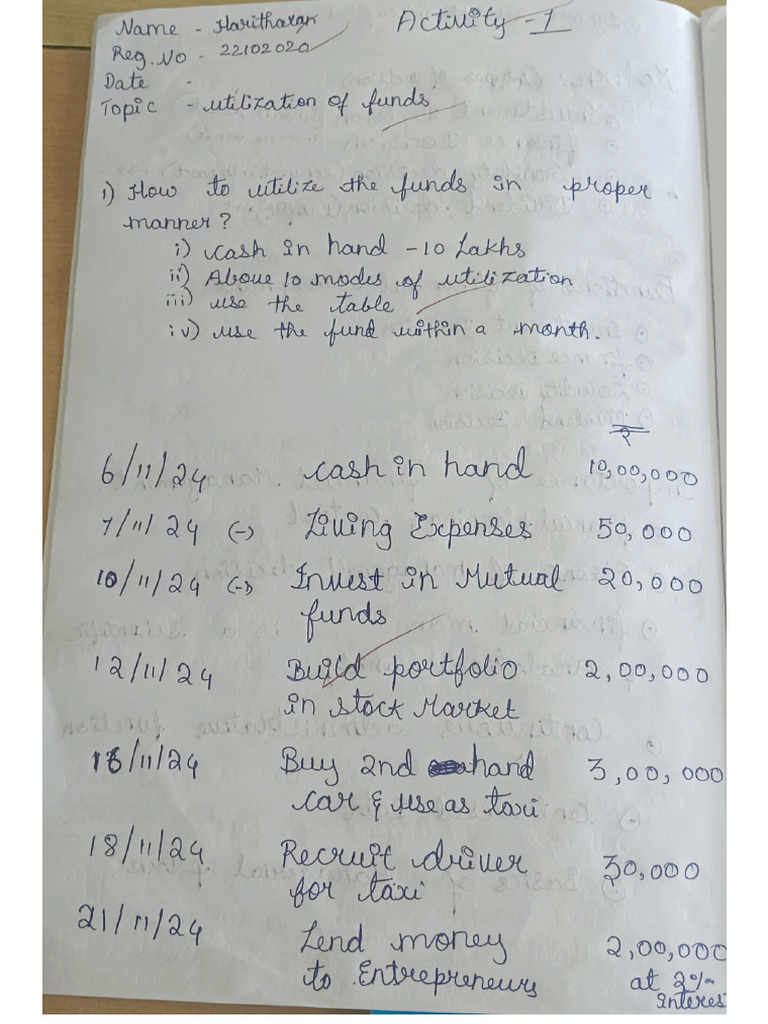 Name - Haritharan
Activity - 1
Reg. No - 22102020
Date -
Topic - utilization of funds
1) How to utilize the funds in proper
manner?
i) cash in hand - 10 Lakhs
ii) Above 10 modes of utilization
iii) use the table
iv) use the fund within a month.
₹
6/11/24 cash in hand 10,00,000
7/11/24 (-) Living Expenses 50,000
10/11/24 (-) Invest in Mutual 20,000
funds
12/11/24 Build portfolio 2,00,000
in stock Market
/11/24 Buy 2nd hand 3,00,000
car & use as taxi
18/11/24 Recruit driver 30,000
for taxi
21/11/24 Lend money 2,00,000
to Entrepreneurs at 2%
interes